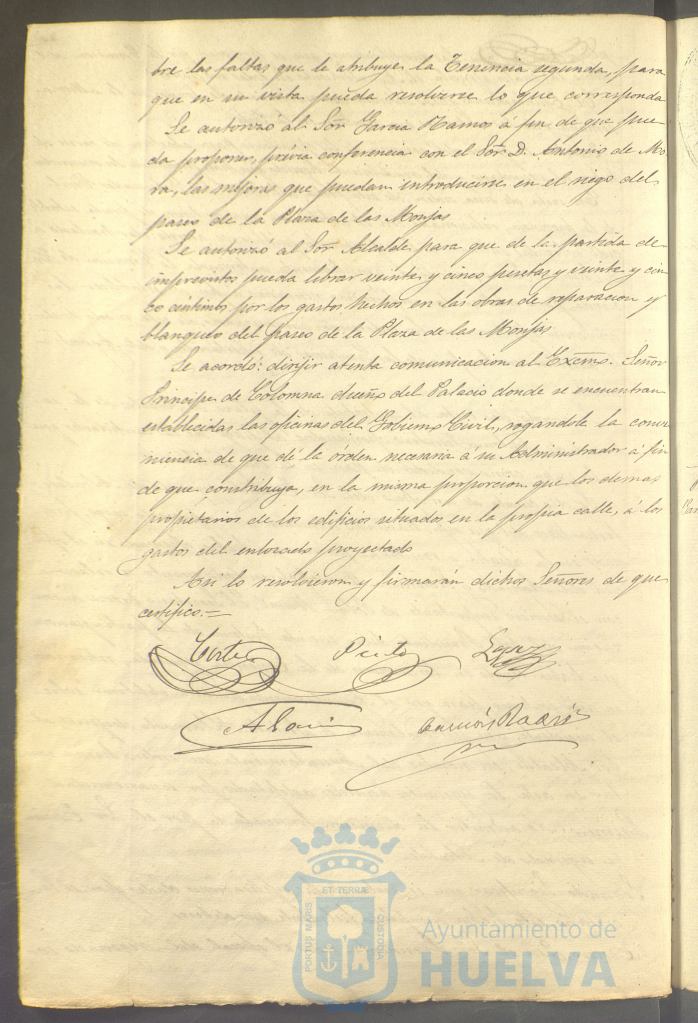 bre las faltas que le atribuye la Tenencia segunda, para
que en su vista pueda resolverse lo que corresponda
Se autorizó al Sor. Garcia Ramos á fin de que pue-
da proponer, prévia conferencia con el Sor. D. Antonio de Mo-
ra, las mejoras que puedan introducirse en el riego del
paseo de la Plaza de las Monjas
Se autorizó al Sor. Alcalde para que de la partida de
imprevistos pueda librar veinte y cinco pesetas y veinte y cin-
co céntimos por los gastos hechos en las obras de reparacion y
blanqueo del paseo de la Plaza de las Monjas
Se acordó: dirijir atenta comunicacion al Excmo. Señor
Principe de Colonna dueño del Palacio donde se encuentran
establecidas las oficinas del Gobierno Civil, rogandole la conve-
niencia de que dé la órden necesaria á su Administrador á fin
de que contribuya, en la misma proporcion que los demas
propietarios de los edificios situados en la propia calle, á los
gastos del enlosado proyectado
Asi lo resolvieron y firmarán dichos Señores de que
certifico.=
Prieto Lopez
PORTUS MARIS ET TERRÆ CUSTODIA
Ayuntamiento de
HUELVA